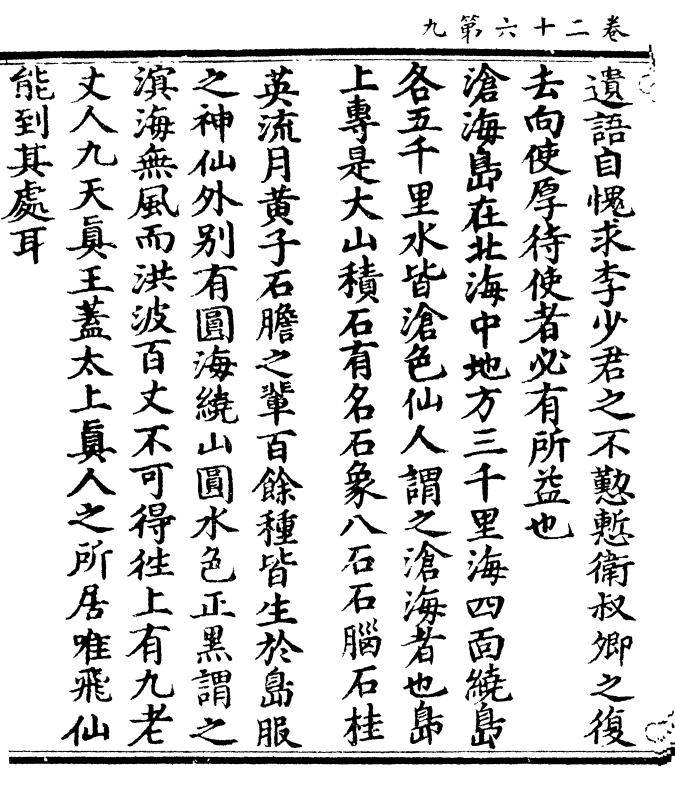 卷二十六第九
遺語自愧求李少君之不懃慙衛叔卿之復
去向使厚待使者必有所益也
滄海島在北海中地方三千里海四面繞島
各五千里水皆滄色仙人謂之滄海者也島
上專是大山積石有名石象八石石腦石桂
英流月黄子石膽之輩百餘種皆生於島服
之神仙外别有圓海繞山圓水色正黑謂之
溟海無風而洪波百丈不可得徃上有九老
丈人九天真王蓋太上真人之所居唯飛仙
能到其處耳